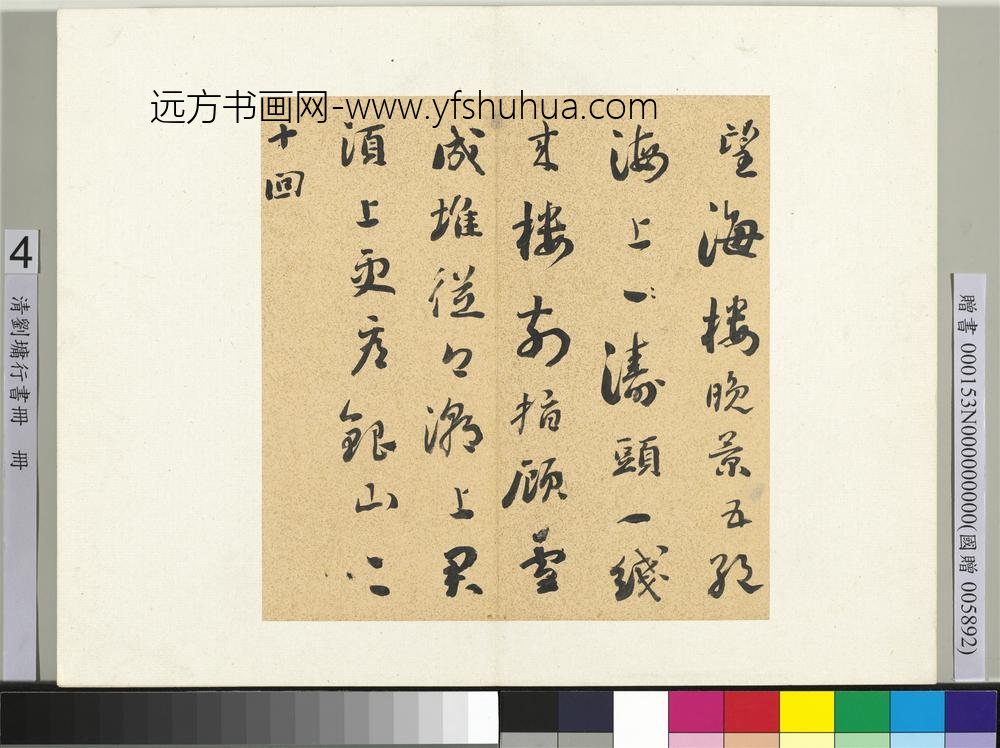 远方书画网-www.yfshuhua.com
望海樓晚景五絕
海上一濤頭一線
來樓前指顧雪
成堆從今潮上君
須上更看銀山二
十回
4
清劉墉行書冊 冊
贈書 000153N000000000(國贈 005892)